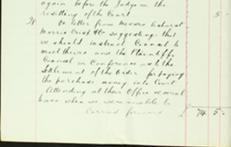 again before the Judge on the
settling of the Court 5
28 On letter from Messrs
Morris Crisp & Co suggesting that
we should instruct Counsel to
meet theirs and the Plaintiffs
Counsel in Conference on the
Settlement of the Order for paying
the purchase money into Court
Attending at their Office several
times when we were unable to
Carried forward £ 74. 5.